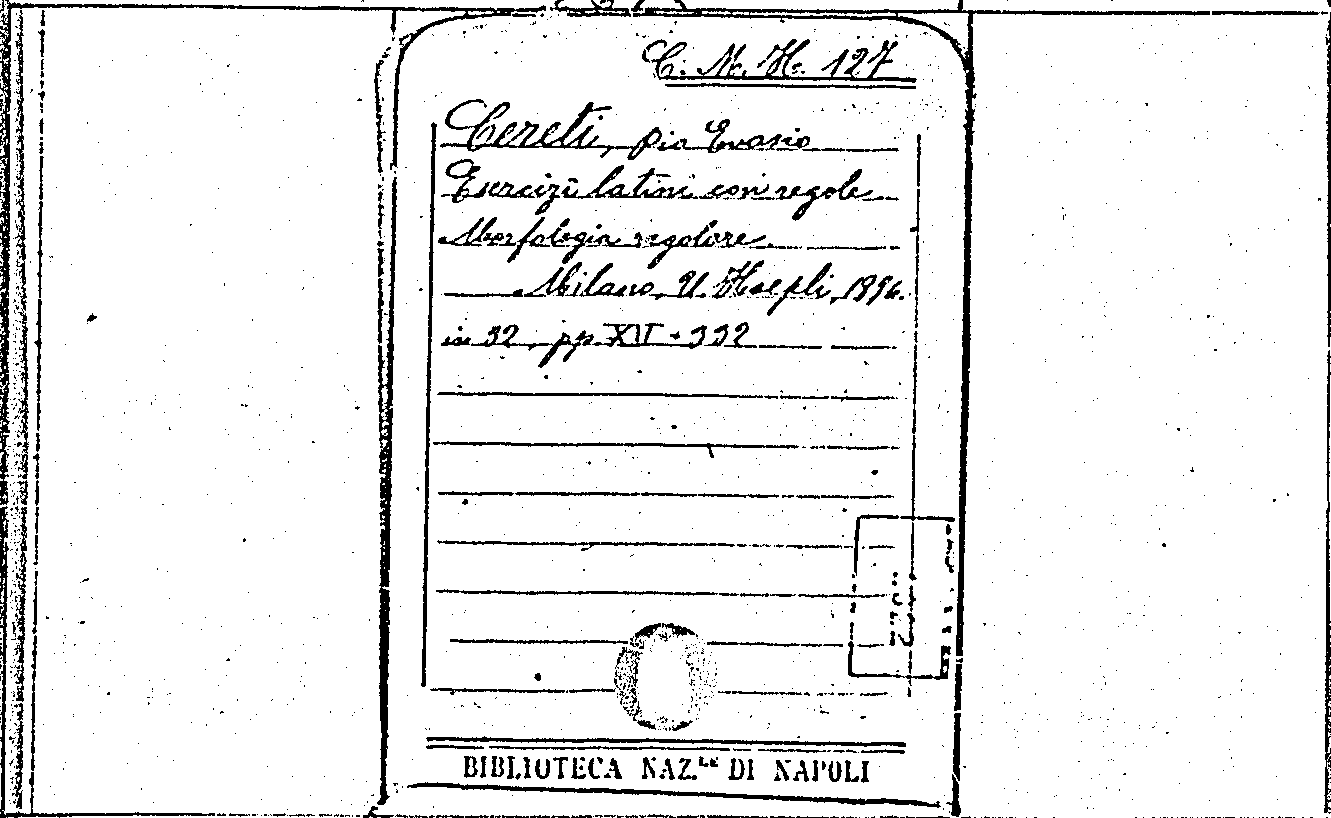 C. M. H. 127
Cereti, Pia Evasio
Esercizi latini con regole
Morfologia regolare
Milano, U. Hoepli, 1896.
in 32, pp. XII + 332
BIBLIOTECA NAZ.LE DI NAPOLI